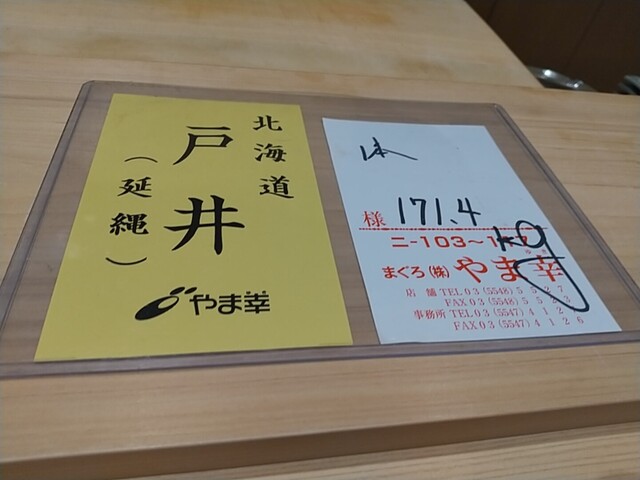 北海道
戸井
（延縄）
やま幸
様 171.4
kg
ニ-103〜
まぐろ(株)やま幸
店舗 TEL03(5548)5527
FAX03(5548)5523
事務所 TEL03(5547)412
FAX03(5547)4126